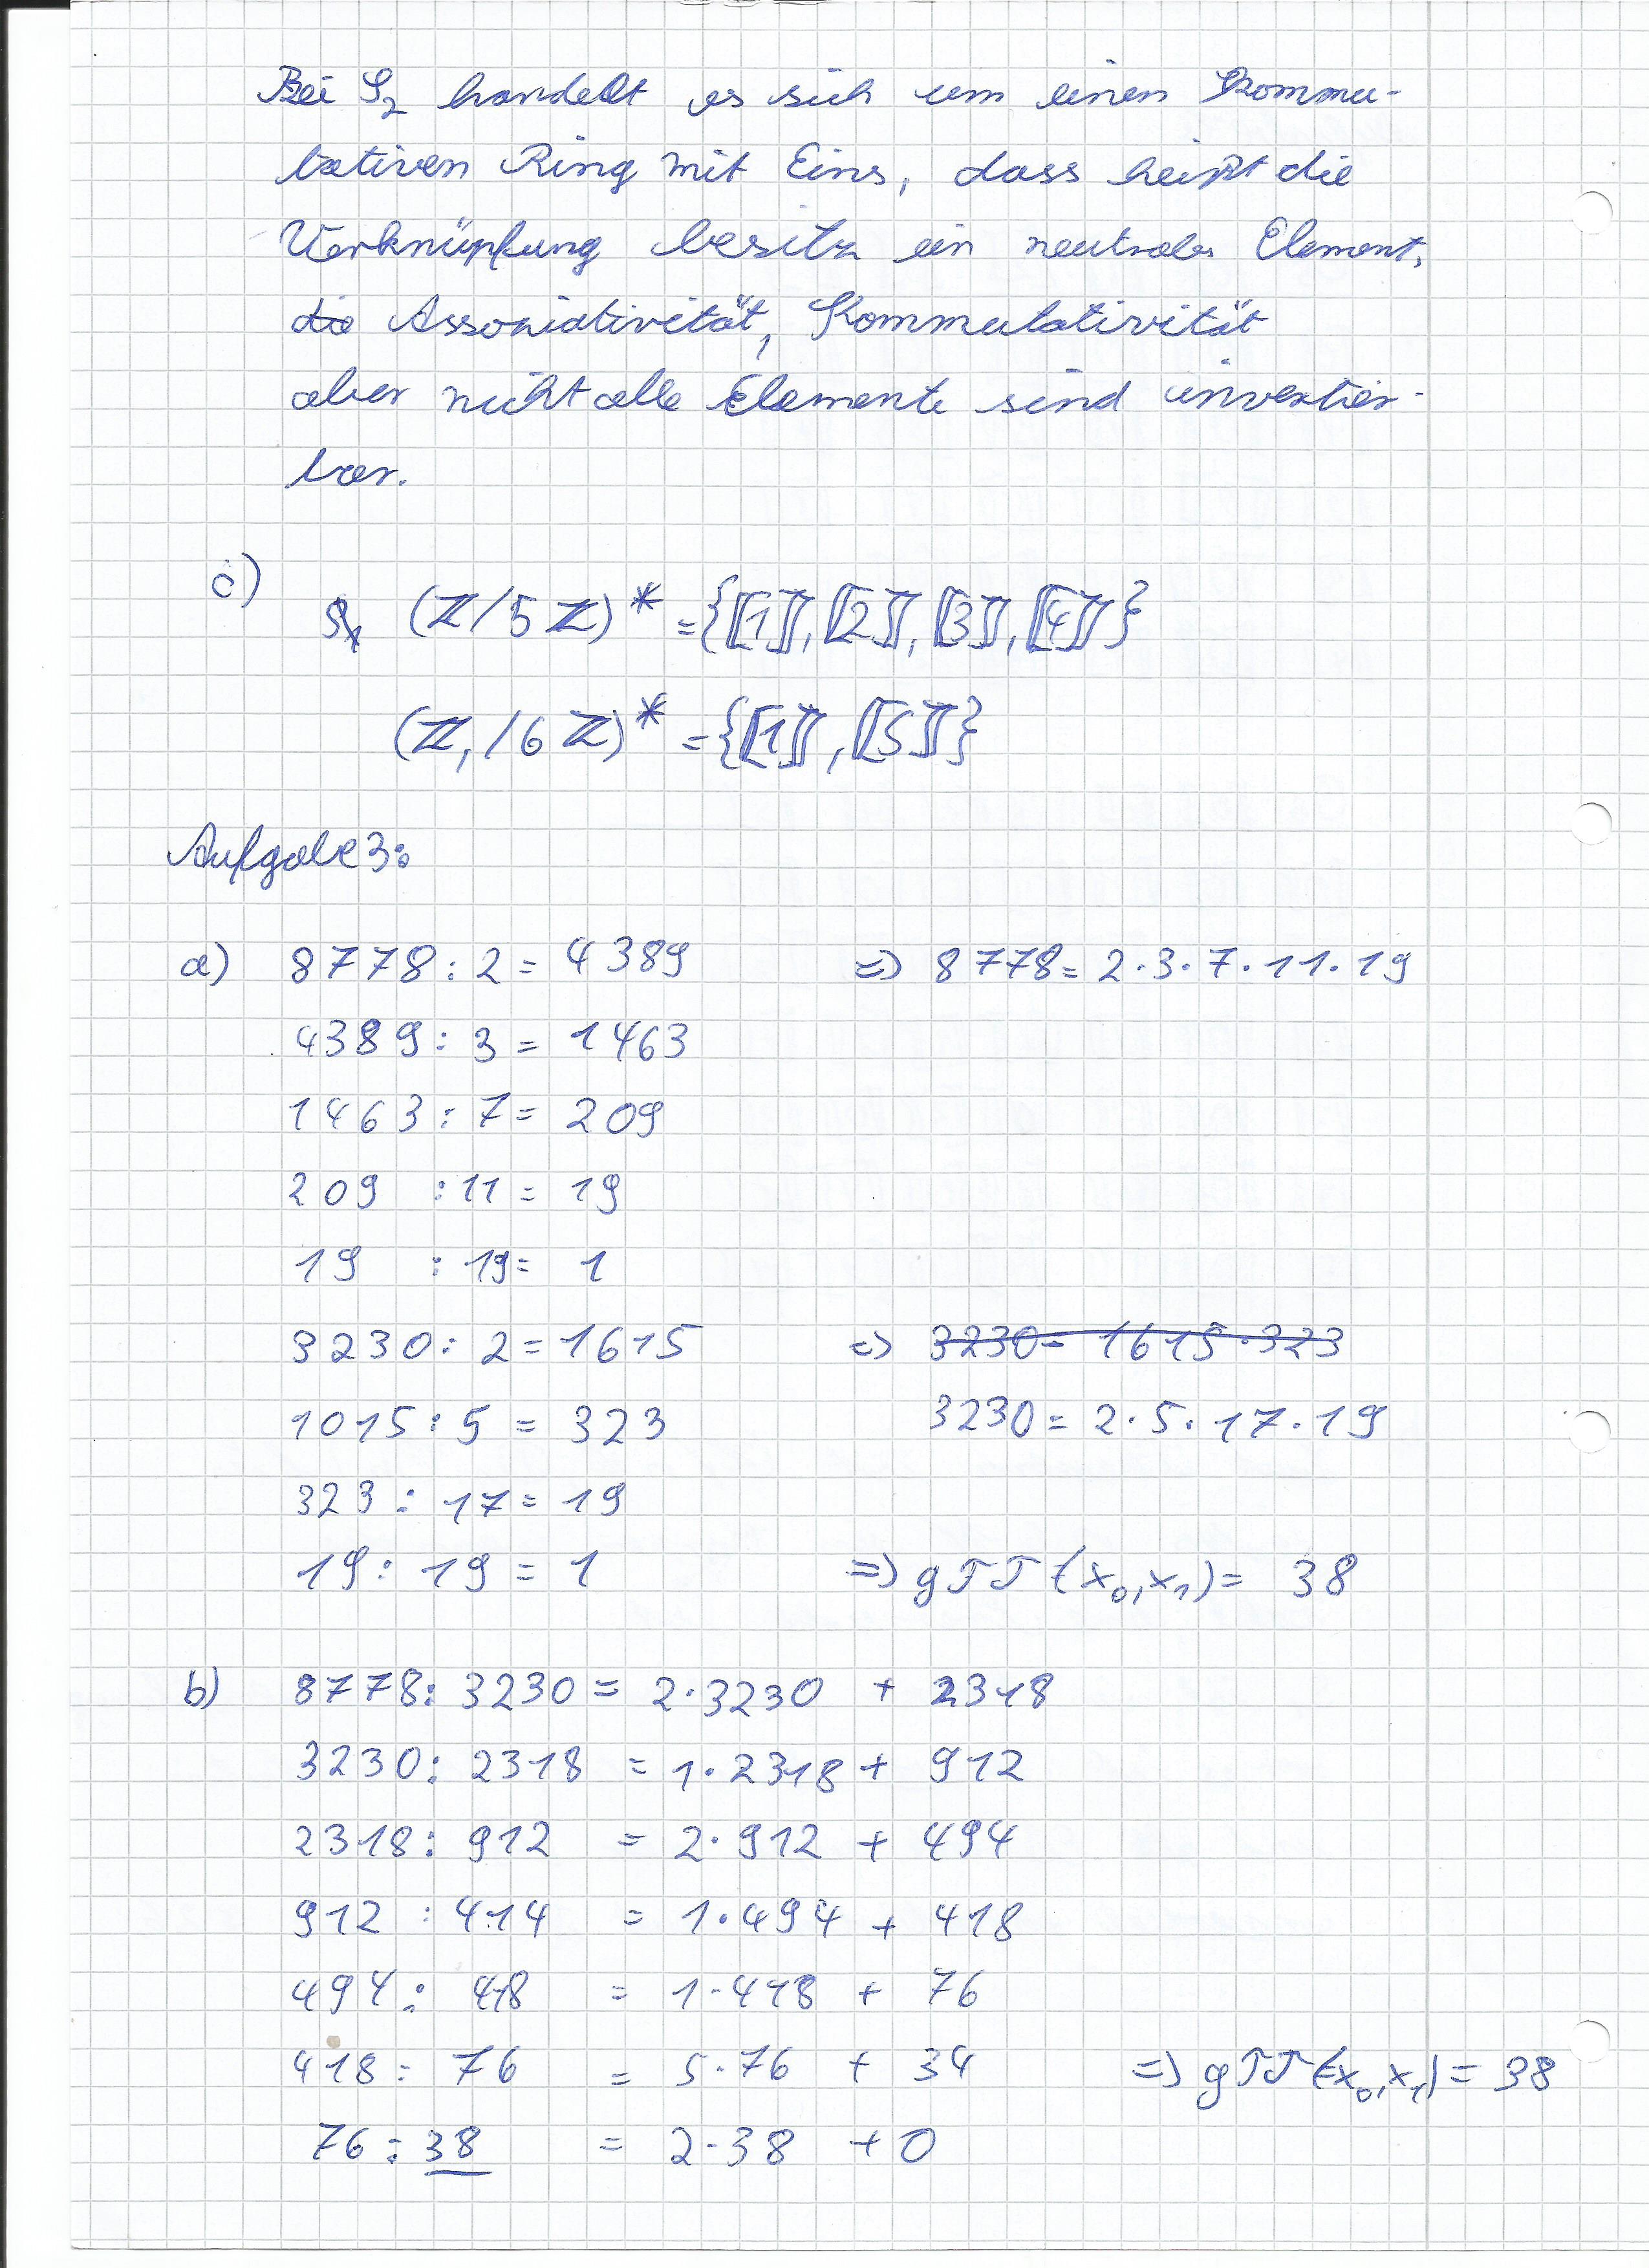 Bei S₂ handelt es sich um einen Kommu-
tativen Ring mit Eins, dass heißt die
Verknüpfung besitz ein neutrales Element,
die Assoziativität, Kommutativität
aber nicht alle Elemente sind invertier-
bar.
c) (ℤ/5ℤ)* = {⟦1⟧, ⟦2⟧, ⟦3⟧, ⟦4⟧}
(ℤ,/6ℤ)* = {⟦1⟧, ⟦5⟧}
Aufgabe 3:
a) 8778 : 2 = 4389 => 8778 = 2·3·7·11·19
4389 : 3 = 1463
1463 : 7 = 209
209 : 11 = 19
19 : 19 = 1
3230 : 2 = 1615 => 3230 = 1615·323
1015 : 5 = 323 3230 = 2·5·17·19
323 : 17 = 19
19 : 19 = 1 => gTT(x₀,x₁) = 38
b) 8778 : 3230 = 2·3230 + 2318
3230 : 2318 = 1·2318 + 912
2318 : 912 = 2·912 + 494
912 : 414 = 1·494 + 418
494 : 418 = 1·418 + 76
418 : 76 = 5·76 + 34 => gTT(x₀,x₁) = 38
76 : 38 = 2·38 + 0